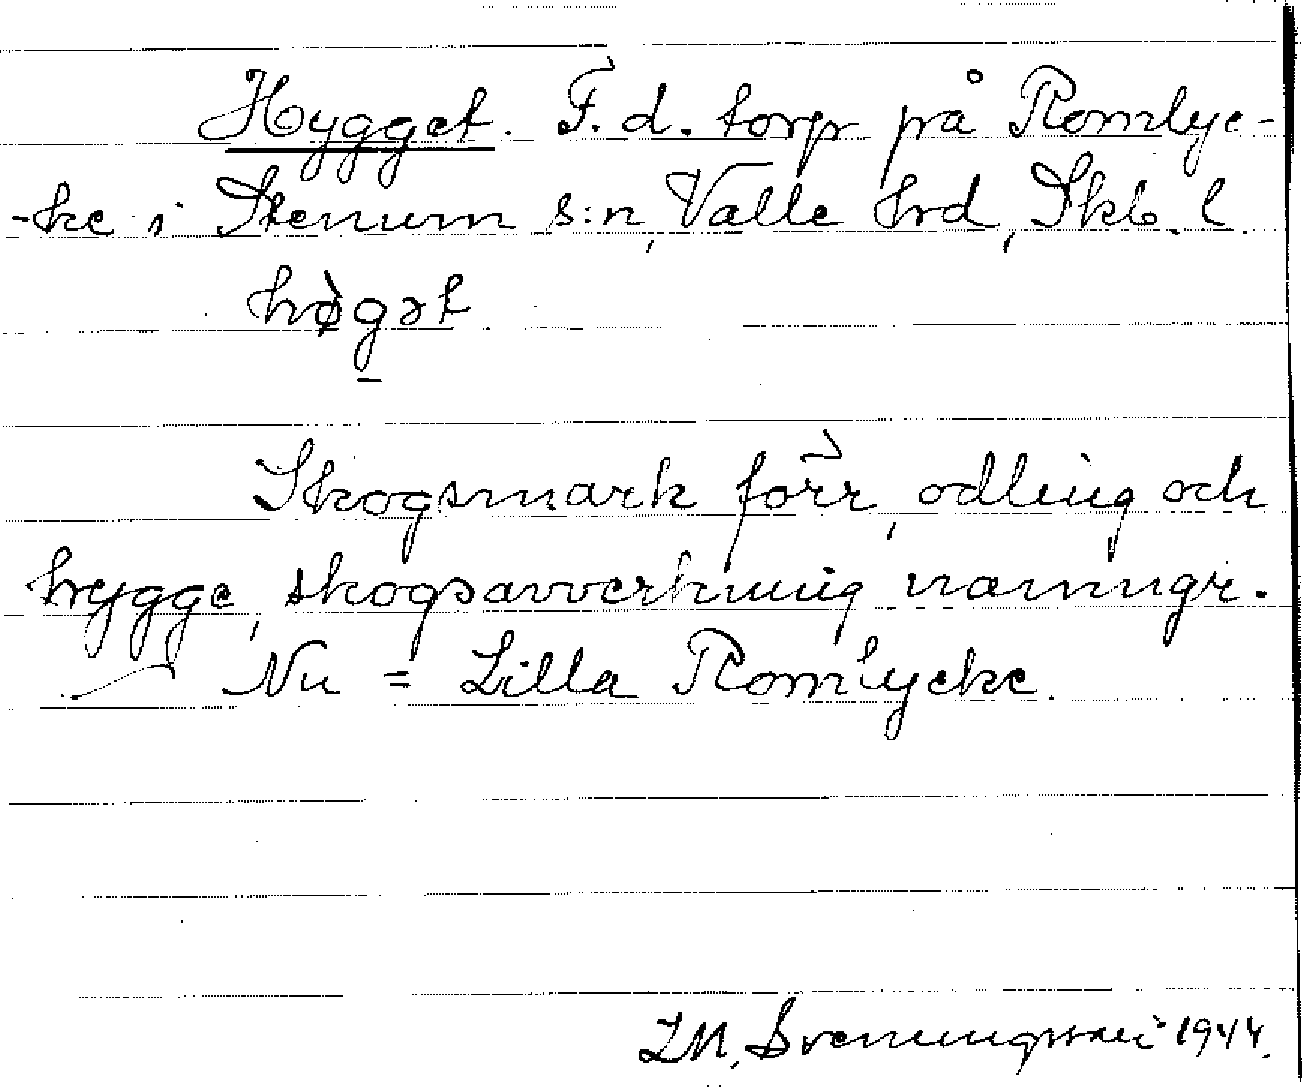 Hygget. F. d. torp på Romlyc-
-ke i Stenum s:n, Valle hrd, Skb. l.
hø̀gət
Skogsmark förr, odling och
hygge, skogsavverkning namngr.
Nu = Lilla Romlycke.
I.M. Svenungsson 1944.